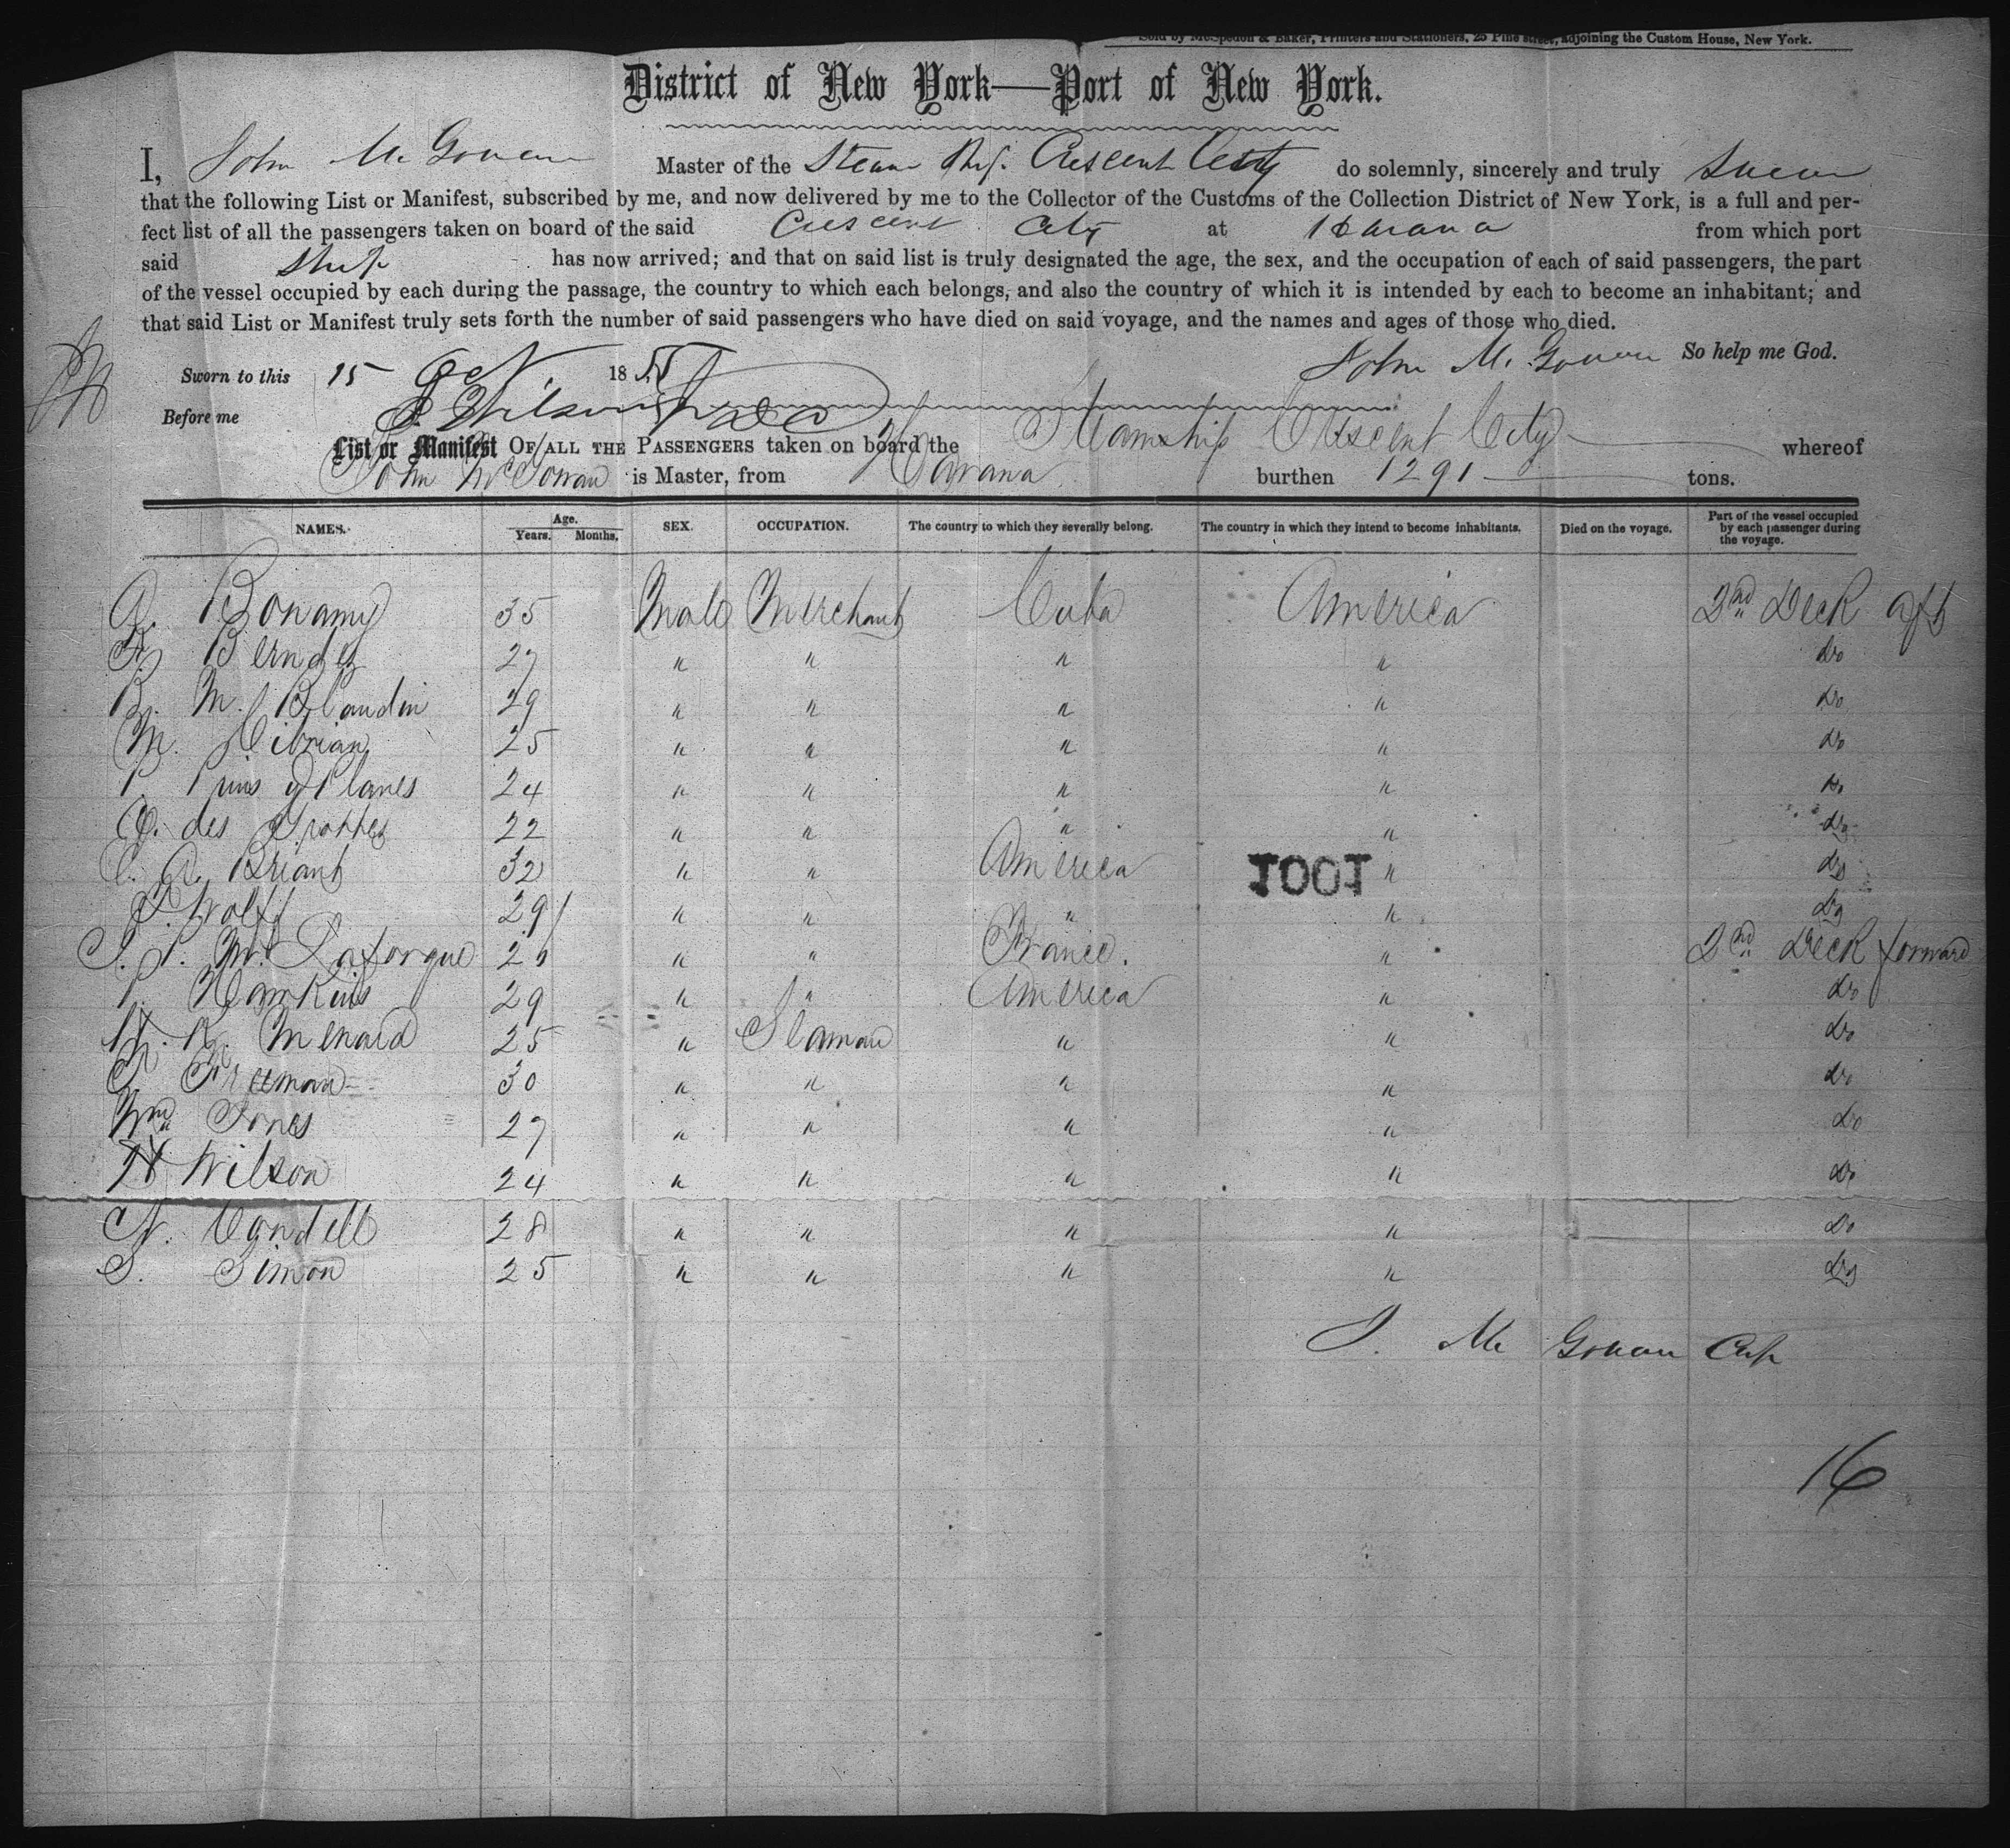 Sold by McSpedon & Baker, Printers and Stationers, 25 Pine street, adjoining the Custom House, New York.
District of New York—Port of New York.
I, John McGowan Master of the Steam Ship Crescent City do solemnly, sincerely and truly swear
that the following List or Manifest, subscribed by me, and now delivered by me to the Collector of the Customs of the Collection District of New York, is a full and per-
fect list of all the passengers taken on board of the said Crescent City at Havana from which port
said Ship has now arrived; and that on said list is truly designated the age, the sex, and the occupation of each of said passengers, the part
of the vessel occupied by each during the passage, the country to which each belongs, and also the country of which it is intended by each to become an inhabitant; and
that said List or Manifest truly sets forth the number of said passengers who have died on said voyage, and the names and ages of those who died.
John McGowan So help me God.
Sworn to this 15 18
Before me
List or Manifest OF ALL THE PASSENGERS taken on board the Steamship Crescent City whereof
John McGowan is Master, from Havana burthen 1291 tons.
NAMES. Age. Years. Months. SEX. OCCUPATION. The country to which they severally belong. The country in which they intend to become inhabitants. Died on the voyage. Part of the vessel occupied by each passenger during the voyage.
Bonamy 35 Male Merchant Cuba America 2nd Deck aft
27 " " " " do
B. M. Blandin 29 " " " " do
M. Cibrian 25 " " " " do
P. y Planes 24 " " " " do
des 22 " " " " do
C. A. Briant 32 " " America " do
Wolff 29 " " " " do
Laforgue " " France. " 2nd Deck forward
P. Hawkins 29 " " America " do
Menard 25 " Seaman " " do
Freeman 30 " " " " do
Wm Jones 27 " " " " do
H Wilson 24 " " " " do
N. Condell 28 " " " " do
S. Simon 25 " " " " do
J. McGowan Capt
16